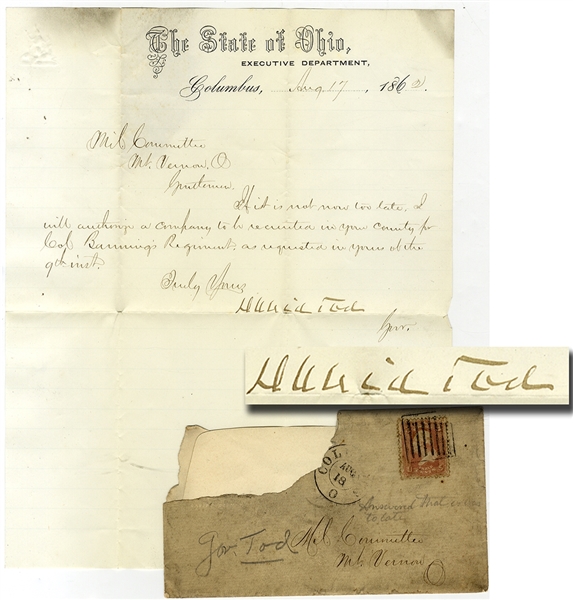 The State of Ohio,
EXECUTIVE DEPARTMENT,
Columbus, Aug 17, 186
Mil Committee
Mt. Vernon. O
Gentlemen.
If it is not now too late, I
will authorize a company to be recruited in your county for
Col Banning's Regiment, as requested in yours of the
9th inst.
Truly Yours
David Tod
Gov.
David Tod
COL
AUG
18
O
Answered that
to late
Gov. Tod
Mil Committee
Mt Vernon
O